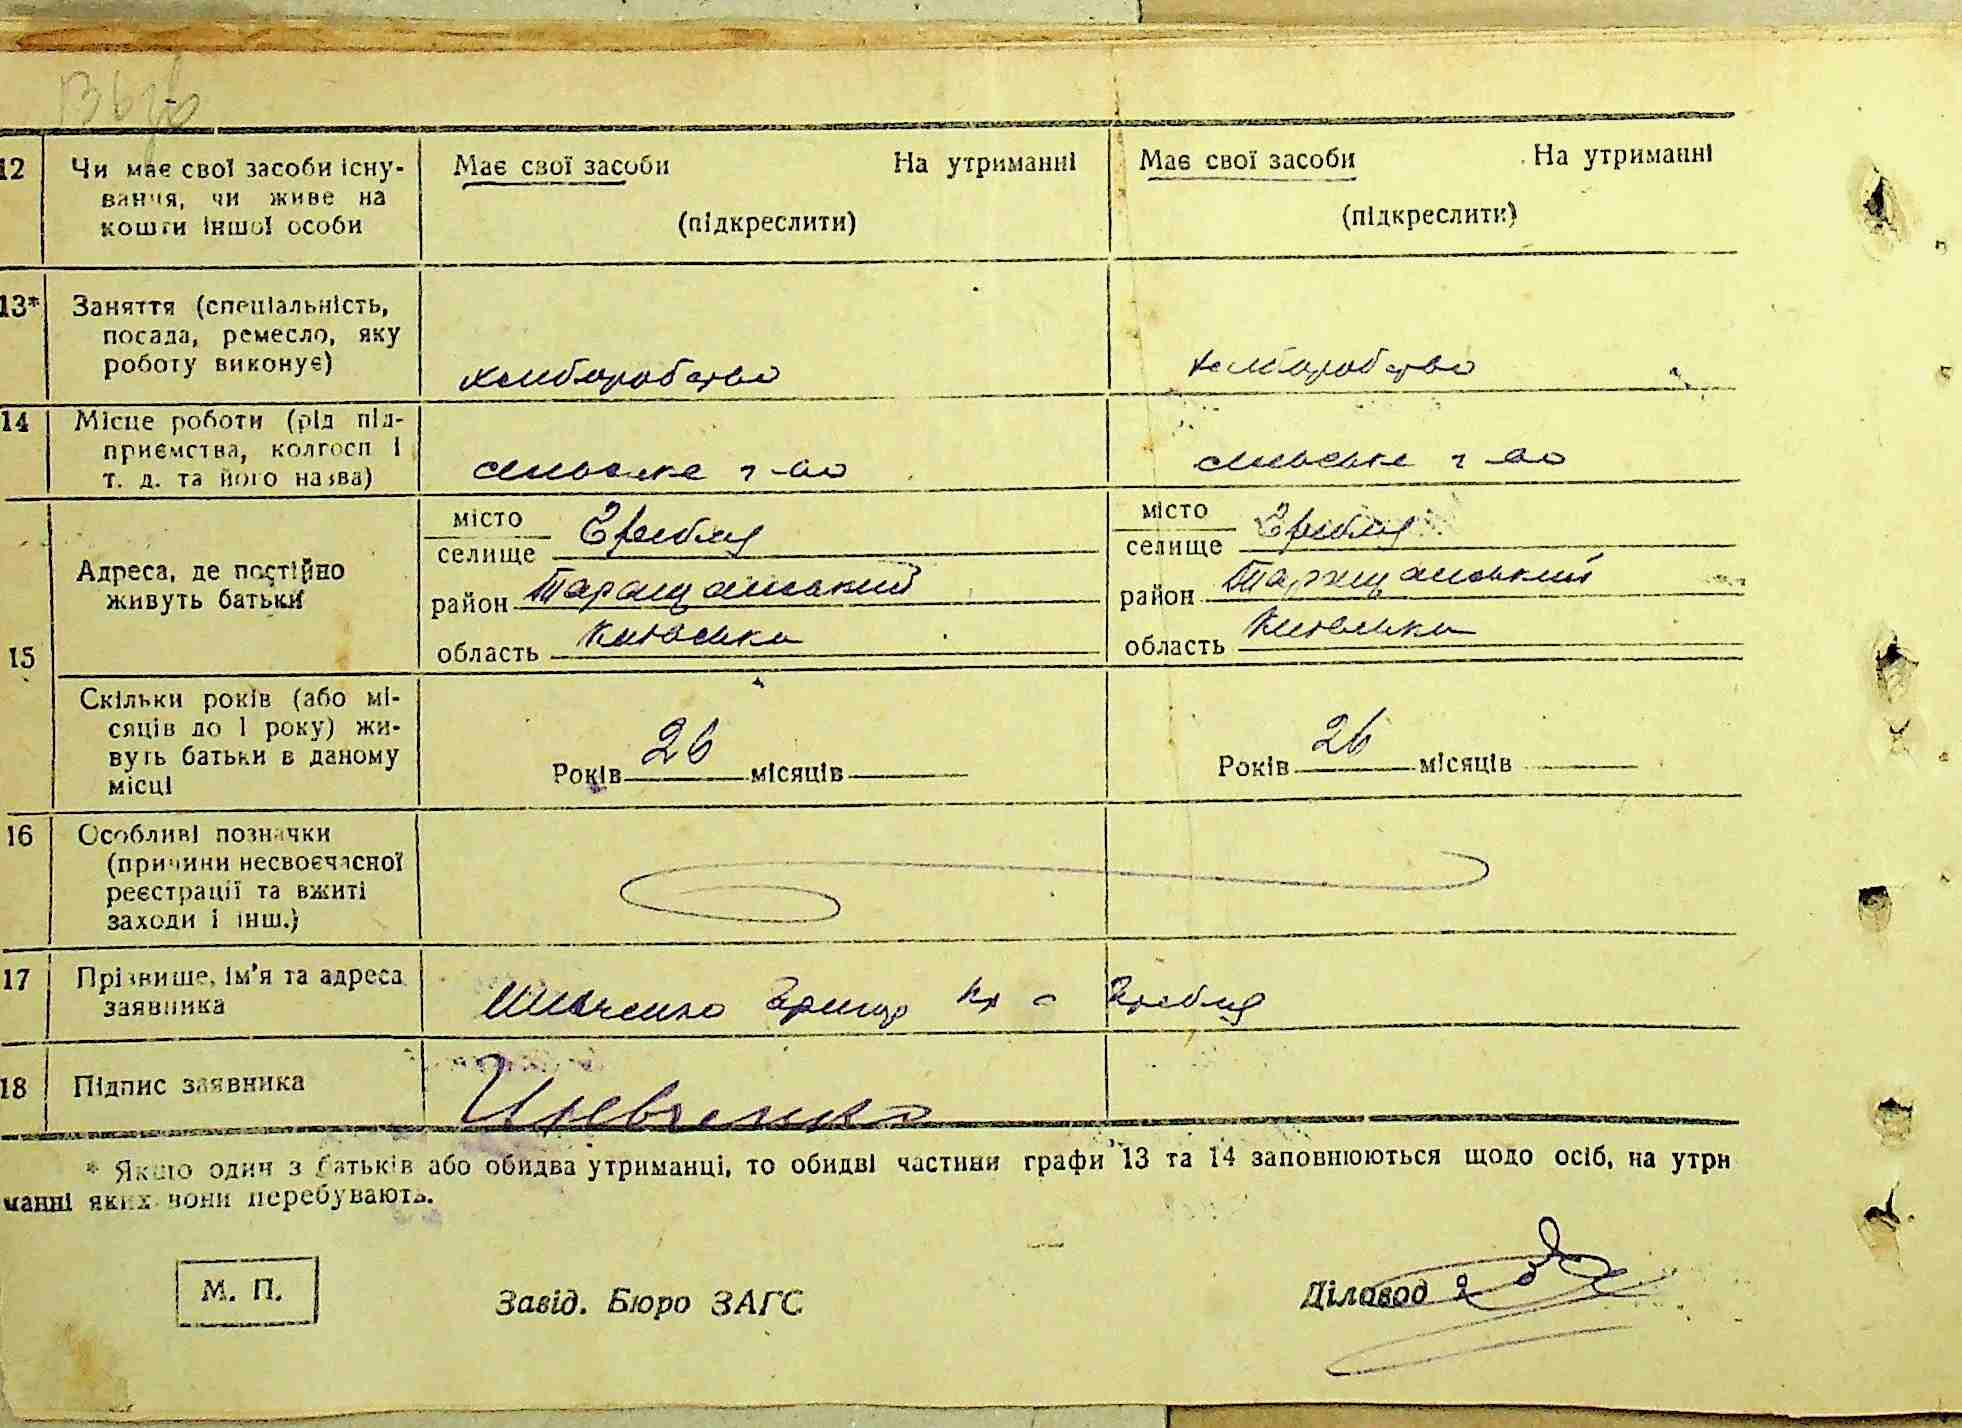 12 Чи має свої засоби існу- Має свої засоби На утриманні Має свої засоби На утриманні
вання, чи живе на
кошти іншої особи (підкреслити) (підкреслити)
13* Заняття (спеціальність,
посада, ремесло, яку
роботу виконує) хлиборобство хлиборобство
14 Місце роботи (рід під-
приємства, колгосп і
т. д. та його назва) сильське г-во сильське г-во
15 Адреса, де постійно
живуть батьки
місто
селище Гребля
район Таращанський
область Київська
місто
селище Гребля
район Таращанський
область Київська
Скільки років (або мі-
сяців до 1 року) жи-
вуть батьки в даному
місці
Років 26 місяців Років 26 місяців
16 Особливі позначки
(причини несвоєчасної
реєстрації та вжиті
заходи і інш.)
17 Прізвище, ім'я та адреса
заявника Шевченко Григор с Гребля
18 Підпис заявника Шевченко
* Якщо один з батьків або обидва утриманці, то обидві частини графи 13 та 14 заповнюються щодо осіб, на утри
манні яких вони перебувають.
М. П. Завід. Бюро ЗАГС Діловод